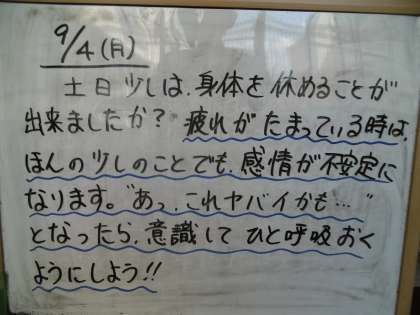 9/4(月)
土日少しは、身体を休めることが
出来ましたか? 疲れがたまっている時は、
ほんの少しのことでも、感情が不安定に
なります。"あっ、これヤバイかも…"
となったら、意識して ひと呼吸おく
ようにしよう!!